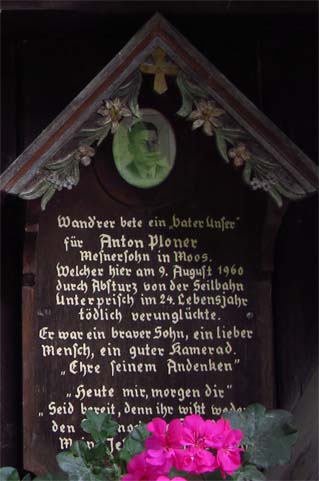 Wand'rer bete ein „Vater Unser"
für Anton Ploner
Mesnersohn in Moos.
Welcher hier am 9. August 1960
durch Absturz von der Seilbahn
Unterprisch im 24. Lebensjahr
tödlich verunglückte.
Er war ein braver Sohn, ein lieber
Mensch, ein guter Kamerad.
„Ehre seinem Andenken"
„Heute mir, morgen dir"
„Seid bereit, denn ihr wißt weder
den